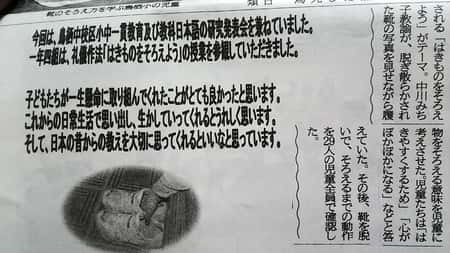 靴のそろえ方を学ぶ鳥栖小の児童
今回は、鳥栖中校区小中一貫教育及び教科日本語の研究発表会を兼ねていました。
一年四組は、礼儀作法「はきものをそろえよう」の授業を参観していただきました。
子どもたちが一生懸命に取り組んでくれたことがとても良かったと思います。
これからの日常生活で思い出し、生かしていってくれるとうれしく思います。
そして、日本の昔からの教えを大切に思ってくれるといいなと思っています。
される「はきものをそろえ
よう」がテーマ。中川みち
子教諭が、脱ぎ散らかされ
た靴の写真を見せながら履
物をそろえる意味を児童に
考えさせた。児童たちは「は
きやすくするため」「心が
ぽかぽかになる」などと答
えていた。その後、靴を脱
いで、そろえるまでの動作
を29人の児童全員で確認し
た。